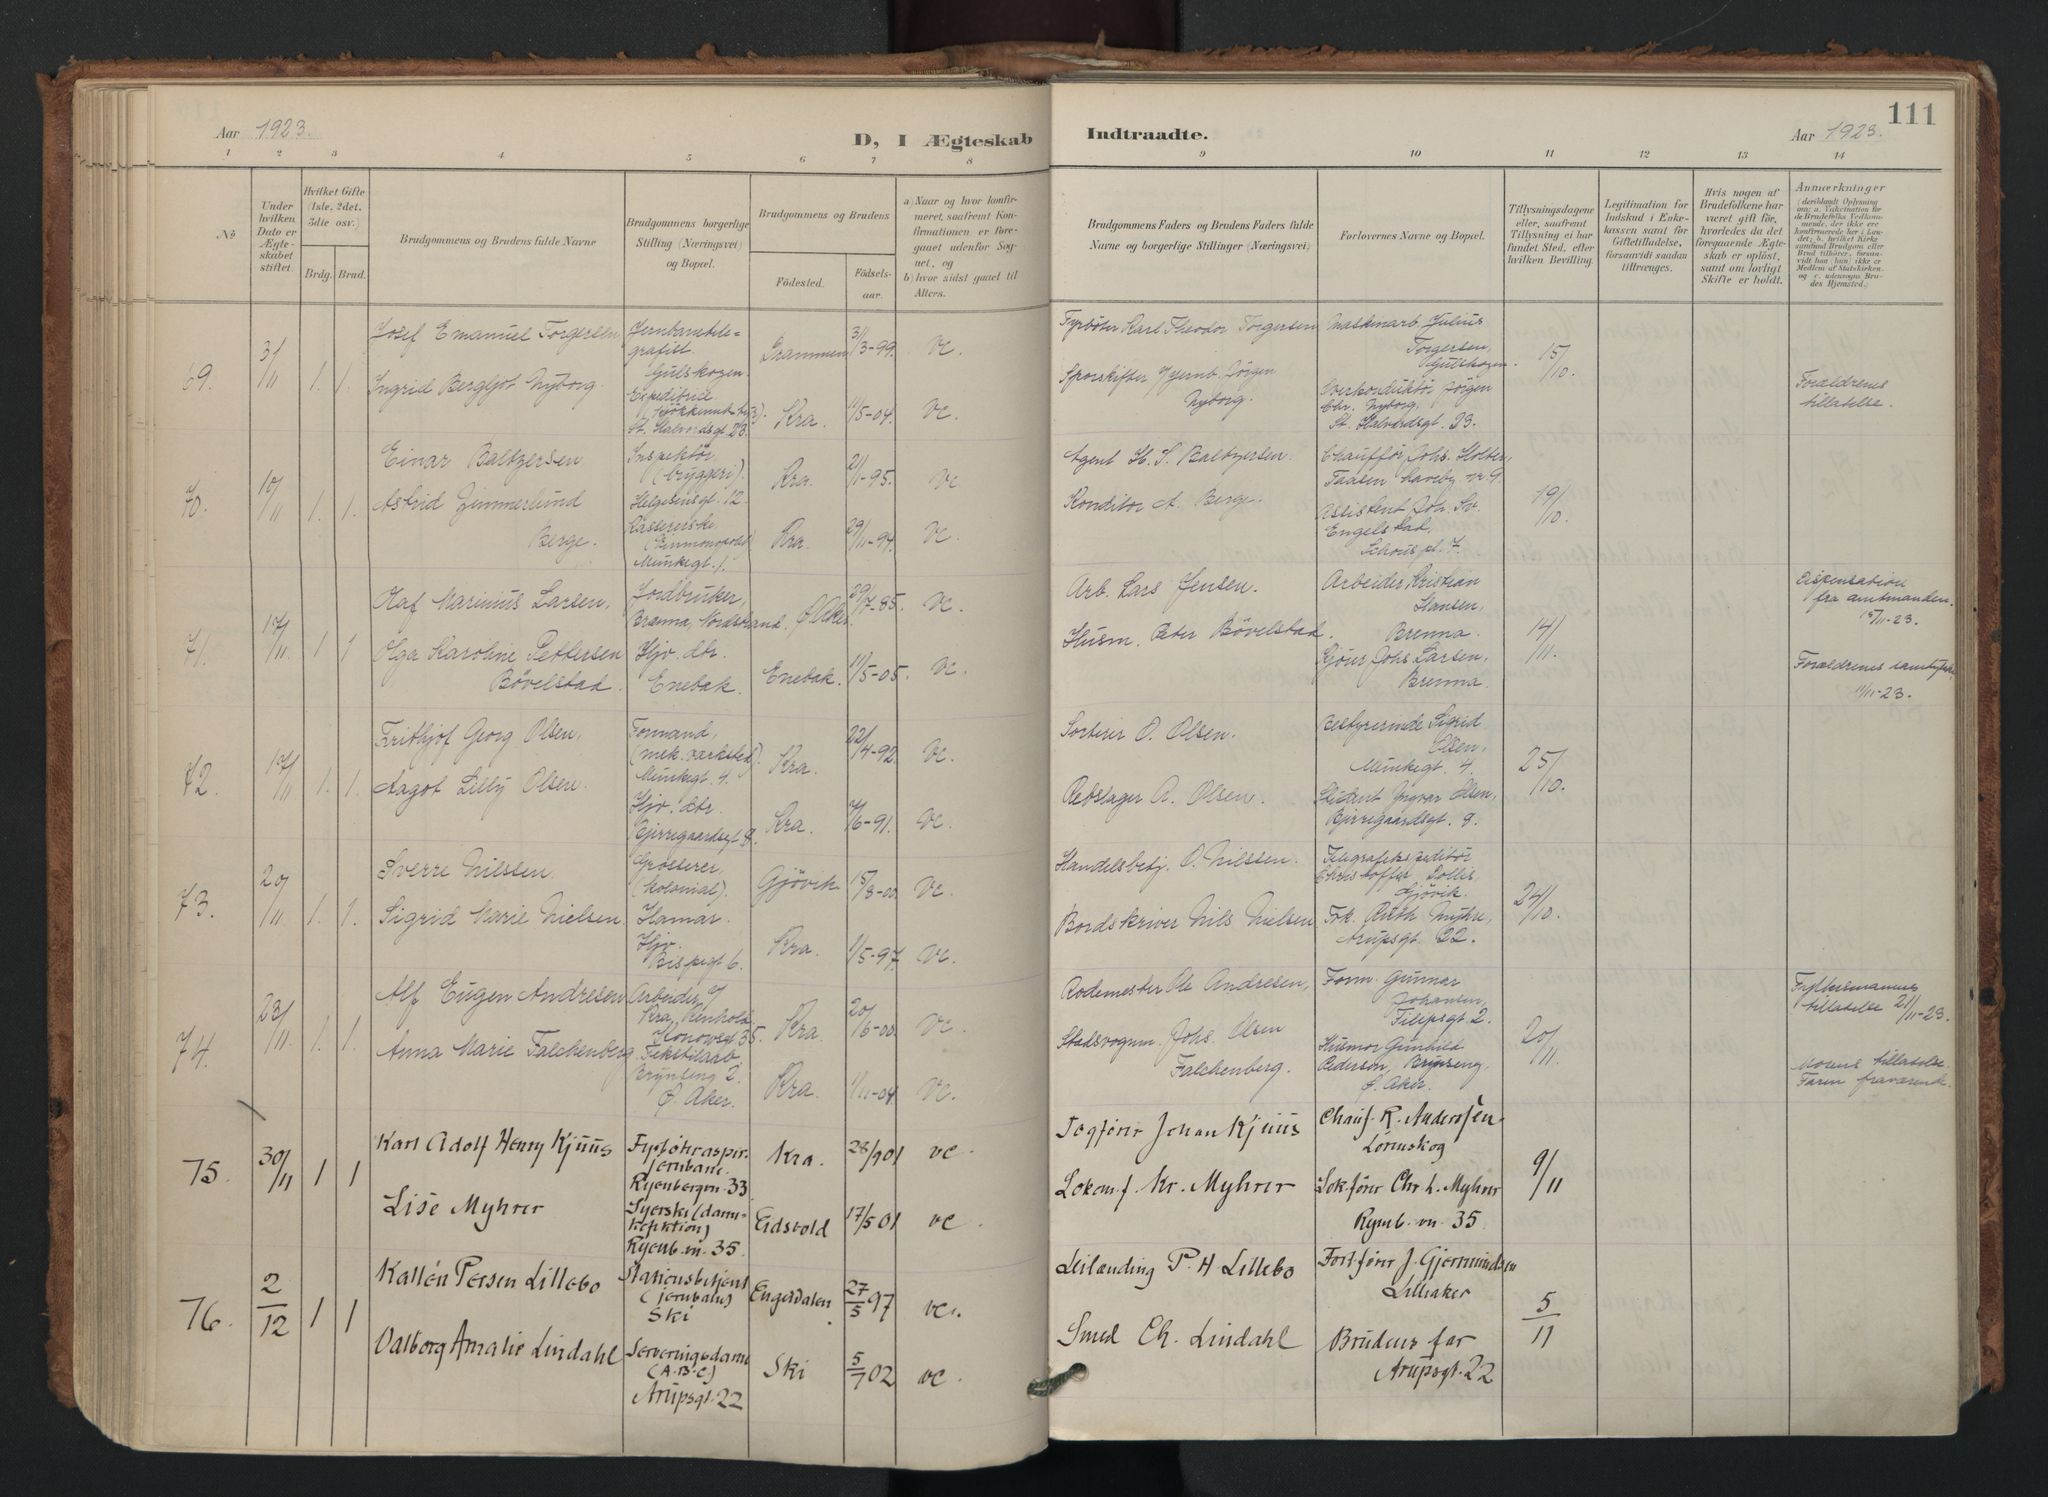 Aar 1923.
D, I Ægteskab
1 2 3 4 5 6 7 8
No
Under hvilken Dato er Ægteskabet stiftet.
Hvilket Gifte (1ste. 2det. 3die osv.)
Brdg. Brud.
Brudgommens og Brudens fulde Navne
Brudgommens borgerlige Stilling (Næringsvei) og Bopæl.
Brudgommens og Brudens
Födested.
Födselsaar.
a) Naar og hvor konfirmeret, saafremt Konfirmationen er foregaaet udenfor Sognet, og
b) hvor sidst gaaet til Alters.
69. 3/11 1. 1.
Josef Emanuel Torgersen
Jernbanetelegrafist.
Gulskogen.
Drammen 31/3-99. vc.
Ingrid Bergljot Nyborg.
St. Halvardsgt 23.
Kra. 11/5-04. vc.
70. 10/11 1. 1.
Einar Baltzersen
Inspektör
(bryggeri).
Helgesensgt. 12.
Kra. 2/1-95. vc.
Astrid Zimmerlund
Berge.
Kassererske
Munkegt. 1.
Kra. 29/11-94. vc.
71. 17/11 1 1
Olaf Marinius Larsen,
Jordbruker,
Brenna, Nordstrand.
Ø. Aker. 29/7-85. vc.
Olga Karoline Pettersen
Bövelstad.
Hjv. dtr.
Enebak.
Enebak. 11/5-05. vc.
72. 17/11 1. 1.
Frithjof Georg Olsen,
Formand,
(mek. værksted).
Munkegt. 4.
Kra. 22/4-92. vc.
Aagot Lilly Olsen.
Hjv. dtr.
Bjerregaardsgt 9.
Kra. 7/6-91. vc.
73. 20/11 1. 1.
Sverre Nilssen.
Grosserer,
(kolonial).
Hamar.
Gjövik. 15/8-00. vc.
Sigrid Marie Nielsen
Hjv.
Bispegt 6.
Kra. 1/5-97. vc.
74. 23/11 1. 1.
Alf Eugen Andresen
Arbeider,
Kra. Renhold
Konowsgt 35.
Kra. 20/6-00. vc.
Anna Marie Falchenberg
Tekstilarb
Brynseng 2.
Ø. Aker.
Kra. 1/11-04 vc.
75. 30/11 1 1
Karl Adolf Henry Kjuus
Jernbane.
Ryenbergvn. 33
Kra. 28/9 01 vc.
Lise Myhrer
Syerske (damekonfektion)
Ryenb. vn. 35.
Eidsvold 17/5 01 vc.
76. 2/12 1 1
Kallén Persen Lillebo
Stationsbetjent
(jernbane)
Ski
Engerdalen 27/5 97 vc.
Valborg Amalie Lindahl
Serveringsdame
(A-B-C)
Arupsgt. 22
Ski 5/7 02 vc.
Indtraadte.
Aar 1923.
111
9 10 11 12 13 14
Brudgommens Faders og Brudens Faders fulde Navne og borgerlige Stillinger (Næringsvei.)
Forlovernes Navne og Bopæl.
Tillysningsdagene eller, saafremt Tillysning ei har fundet Sted, efter hvilken Bevilling.
Legitimation for Indskud i Enkekassen samt for Giftetilladelse, forsaavidt saadan tiltrænges.
Hvis nogen af Brudefolkene har været gift för, hvorledes da det foregaaende Ægteskab er oplöst, samt om lovligt Skifte er holdt.
Anmærkninger
(deriblandt Oplysning om: a. Vakcination for de Brudefolks Vedkommende, der ikke ere konfirmerede her i Landet; b. hvilket Kirkesamfund Brudgom eller Brud tilhörer, forsaavidt han (hun) ikke er Medlem af Statskirken og c. udensogns Brudes Hjemsted.)
Fyrböter Karl Theodor Torgersen
Maskinarb. Julius
Torgersen,
Gulskogen.
15/10.
Sporskifter v/ Jernb. Jörgen
Nyborg.
Overkonduktör Jörgen
Chr. Nyborg,
St. Halvardsgt. 23.
Foraeldrenes
tillatelse.
Agent H. S. Baltzersen.
Chaufför Johs. Holter,
Taasen haveby nr. 9.
19/10.
Konditor A. Berge.
Assistent Joh. Sv.
Engelstad,
Schous pl. 7.
Arb. Lars Jensen.
Arbeider Kristian
Hansen,
Brenna.
14/11.
Dispensation
fra amtmanden.
15/11-23.
Husm. Peter Bövelstad.
Johs Larsen,
Brenna.
Foraeldrenes samtykke
11/11-23.
Sorterer O. Olsen.
Bestyrerinde Sigrid
Olsen,
Munkegt. 4.
25/10.
Rebslager A. Olsen.
Student Yngvar Olsen,
Bjerregaardsgt. 9.
Handelsbetj. O. Nilssen.
Telegrafekspeditör
Christoffer Dollis,
Gjövik.
24/10.
Bordskriver Nils Nielsen
Frk. Ruth Myhre,
Arupsgt. 22.
Rodemester Ole Andresen,
Form. Gunnar
Johansen,
Filipsgt. 2.
20/11.
Fylkesmannens
tillatelse 21/11-23.
Stadsvognm. Johs. Olsen
Falchenberg.
Husmor Gunhild
Pedersen, Brynseng,
Ø. Aker.
Morens tillatelse.
Faren fraværende.
Togförer Johan Kjuus
Chauf. R. Anderssen
Lörenskog
9/11
Lokomf. Kr. Myhrer
Lokförer Chr. L. Myhrer
Ryenb. vn. 35
Leilænding P. H Lillebo
J. Gjermundsen
Lilleaker
5/11
Smed Ch. Lindahl
Brudens far
Arupsgt. 22